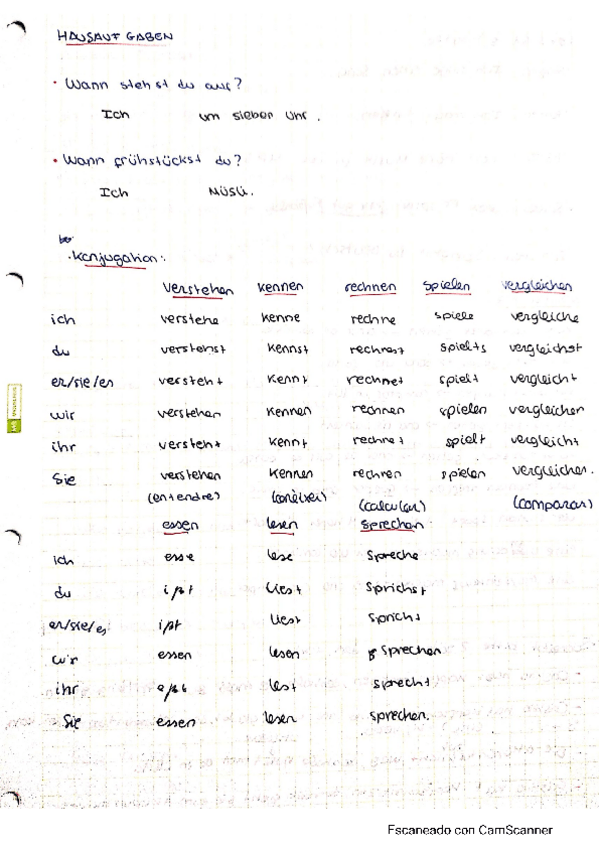 HAUSAUFGABEN
· Wann stehst du auf?
Ich um sieben Uhr.
· Wann frühstückst du?
Ich Müsli.
· Konjugation:
verstehen kennen rechnen spielen vergleichen
ich verstehe kenne rechne spiele vergleiche
du verstehst kennst rechnest spielts vergleichst
er/sie/es versteht kennt rechnet spielt vergleicht
wir verstehen kennen rechnen spielen vergleichen
ihr versteht kennt rechnet spielt vergleicht
Sie verstehen kennen rechnen spielen vergleichen.
(entendre) (conèixer) (calcular) (comparar)
essen lesen sprechen
ich esse lese spreche
du ißt liest sprichst
er/sie/es ißt liest spricht
wir essen lesen sprechen
ihr eßt lest sprecht
Sie essen lesen sprechen.
Escaneado con CamScanner